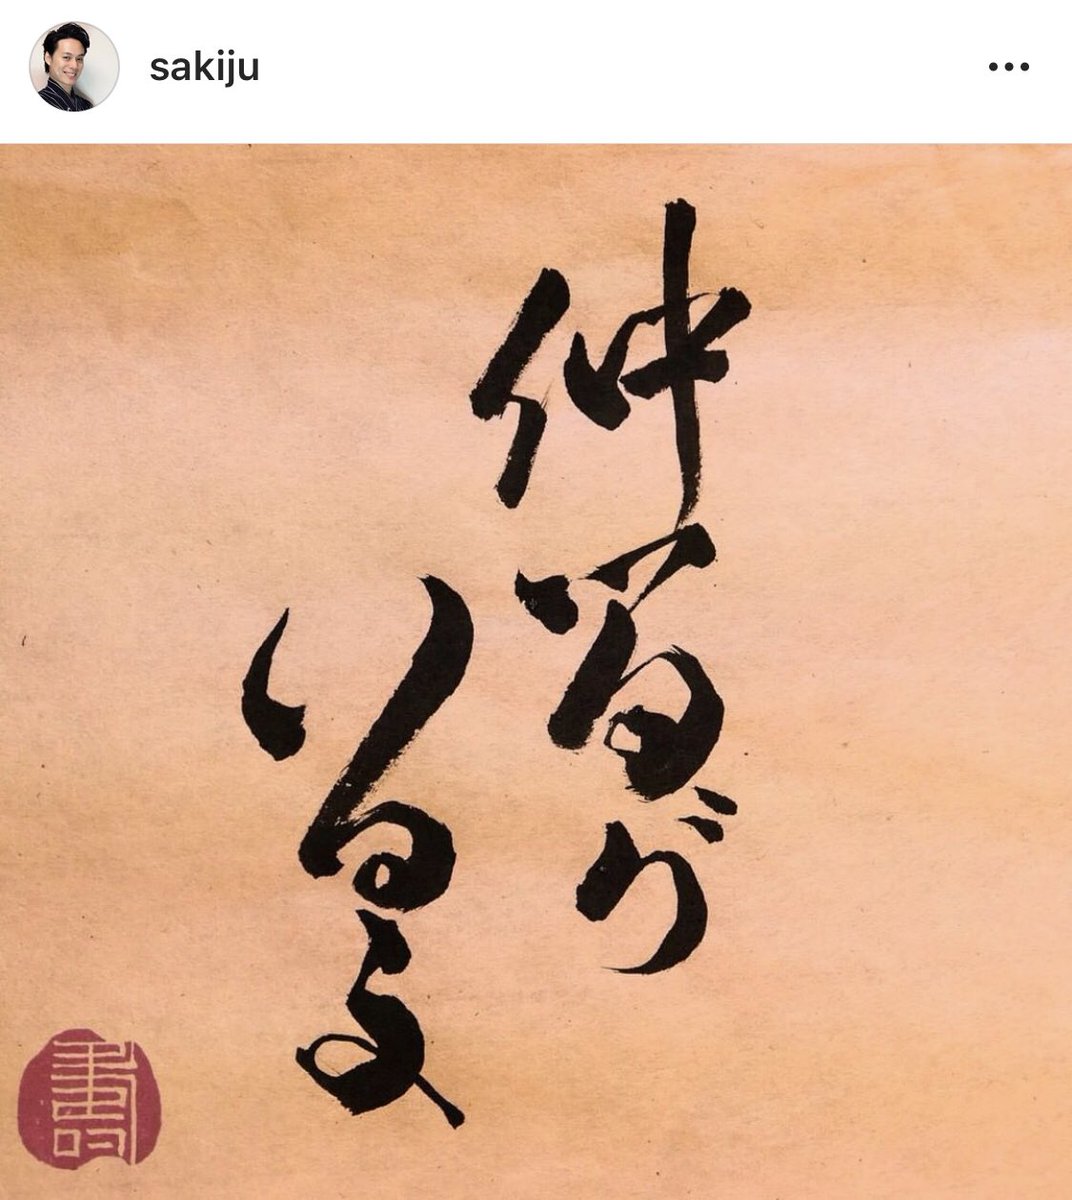 sakiju
仲間が
いるよ
壽